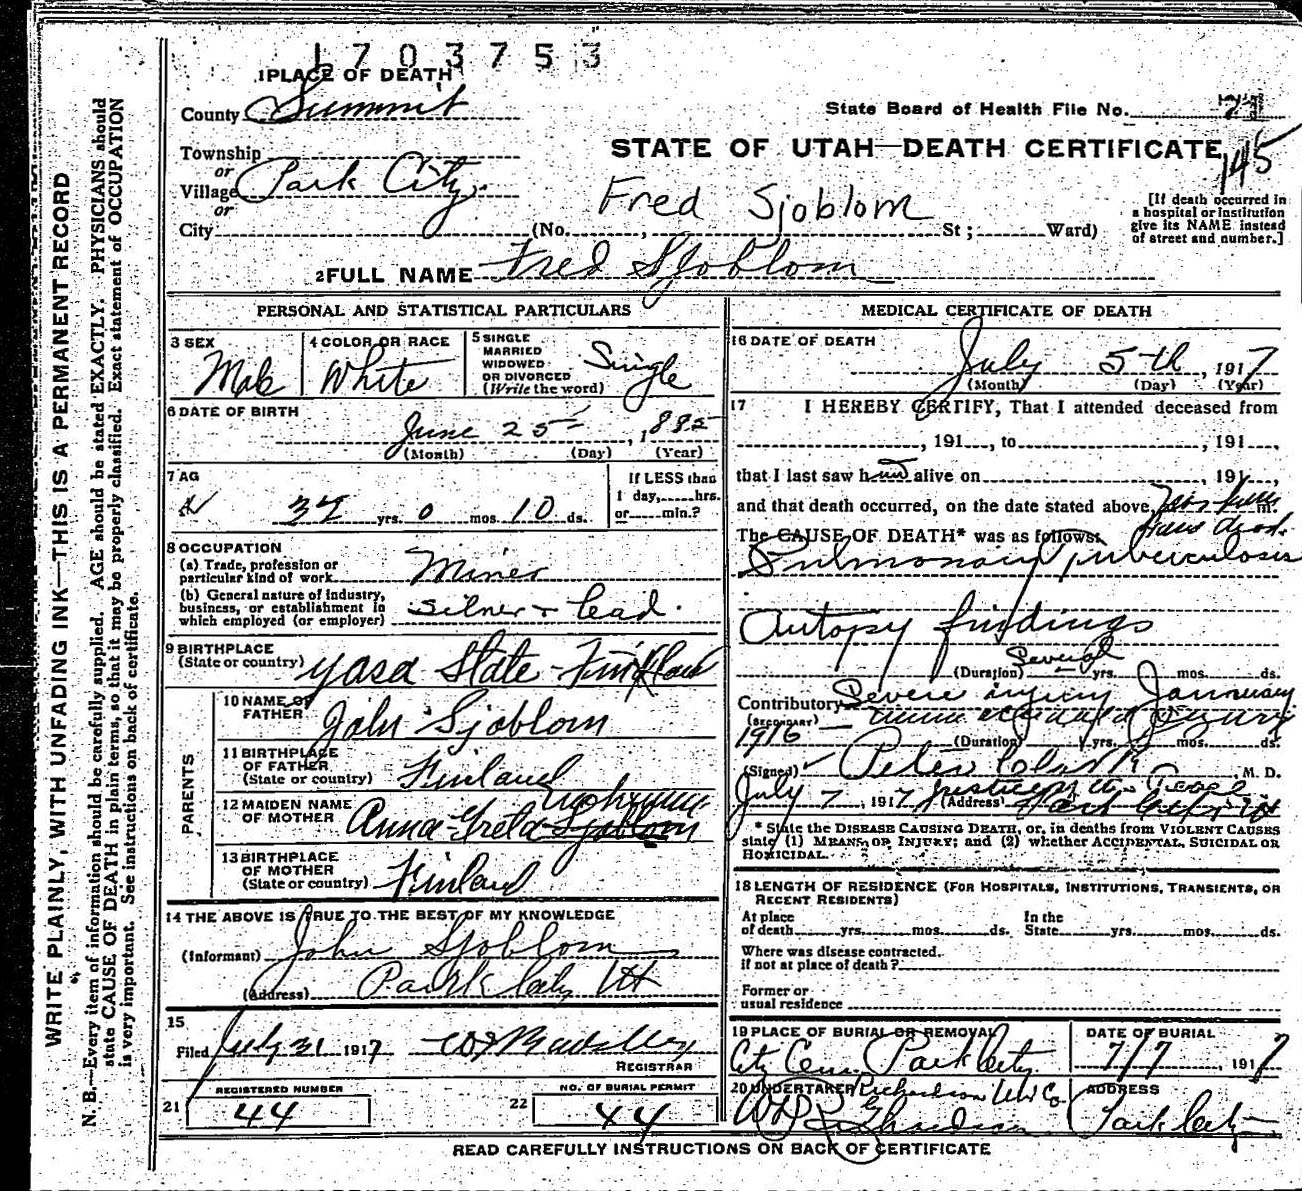 1703753
1 PLACE OF DEATH
County Summit
State Board of Health File No.
Township
or
Village Park City.
or
City (No. , St ; Ward)
STATE OF UTAH—DEATH CERTIFICATE
145
Fred Sjoblom
[If death occurred in
a hospital or institution
give its NAME instead
of street and number.]
2 FULL NAME Fred Sjoblom
PERSONAL AND STATISTICAL PARTICULARS
3 SEX
Male
4 COLOR OR RACE
White
5 SINGLE
MARRIED
WIDOWED
OR DIVORCED
(Write the word)
Single
6 DATE OF BIRTH
June 25 , 1885
(Month) (Day) (Year)
7 AG
yrs. 0 mos. 10 ds.
If LESS than
1 day, hrs.
or min.?
8 OCCUPATION
(a) Trade, profession or
particular kind of work Miner
(b) General nature of industry,
business, or establishment in
which employed (or employer) Silver + Lead.
9 BIRTHPLACE
(State or country) Yasa State - Finland
PARENTS
10 NAME OF
FATHER John Sjoblom
11 BIRTHPLACE
OF FATHER
(State or country) Finland
12 MAIDEN NAME
OF MOTHER Anna Greta Sjoblom
13 BIRTHPLACE
OF MOTHER
(State or country) Finland
14 THE ABOVE IS TRUE TO THE BEST OF MY KNOWLEDGE
(Informant) John Sjoblom
(Address) Park City Ut
15
Filed July 31 1917
REGISTRAR
REGISTERED NUMBER
21 44
NO. OF BURIAL PERMIT
22 44
MEDICAL CERTIFICATE OF DEATH
16 DATE OF DEATH
July 5th , 1917
(Month) (Day) (Year)
17 I HEREBY CERTIFY, That I attended deceased from
, 191 , to , 191 ,
that I last saw h alive on , 191 ,
and that death occurred, on the date stated above, m.
The CAUSE OF DEATH* was as follows:
Pulmonary tuberculosis
Autopsy findings
(Duration) Several yrs. mos. ds.
Contributory Severe injury January
(SECONDARY)
1916
(Duration) yrs. mos. ds.
(Signed) Peter Clark M. D.
July 7, 1917 (Address) Park City Ut
* State the DISEASE CAUSING DEATH, or, in deaths from VIOLENT CAUSES
state (1) MEANS OF INJURY; and (2) whether ACCIDENTAL, SUICIDAL OR
HOMICIDAL.
18 LENGTH OF RESIDENCE (FOR HOSPITALS, INSTITUTIONS, TRANSIENTS, OR
RECENT RESIDENTS)
At place
of death yrs. mos. ds.
In the
State yrs. mos. ds.
Where was disease contracted.
if not at place of death?
Former or
usual residence
19 PLACE OF BURIAL OR REMOVAL
City Cem. Park City
DATE OF BURIAL
7/7 , 1917
20 UNDERTAKER Richardson Und Co.
ADDRESS
Park City
READ CAREFULLY INSTRUCTIONS ON BACK OF CERTIFICATE
WRITE PLAINLY, WITH UNFADING INK—THIS IS A PERMANENT RECORD
N. B.—Every item of information should be carefully supplied. AGE should be stated EXACTLY. PHYSICIANS should
state CAUSE OF DEATH in plain terms, so that it may be properly classified. Exact statement of OCCUPATION
is very important. See instructions on back of certificate.